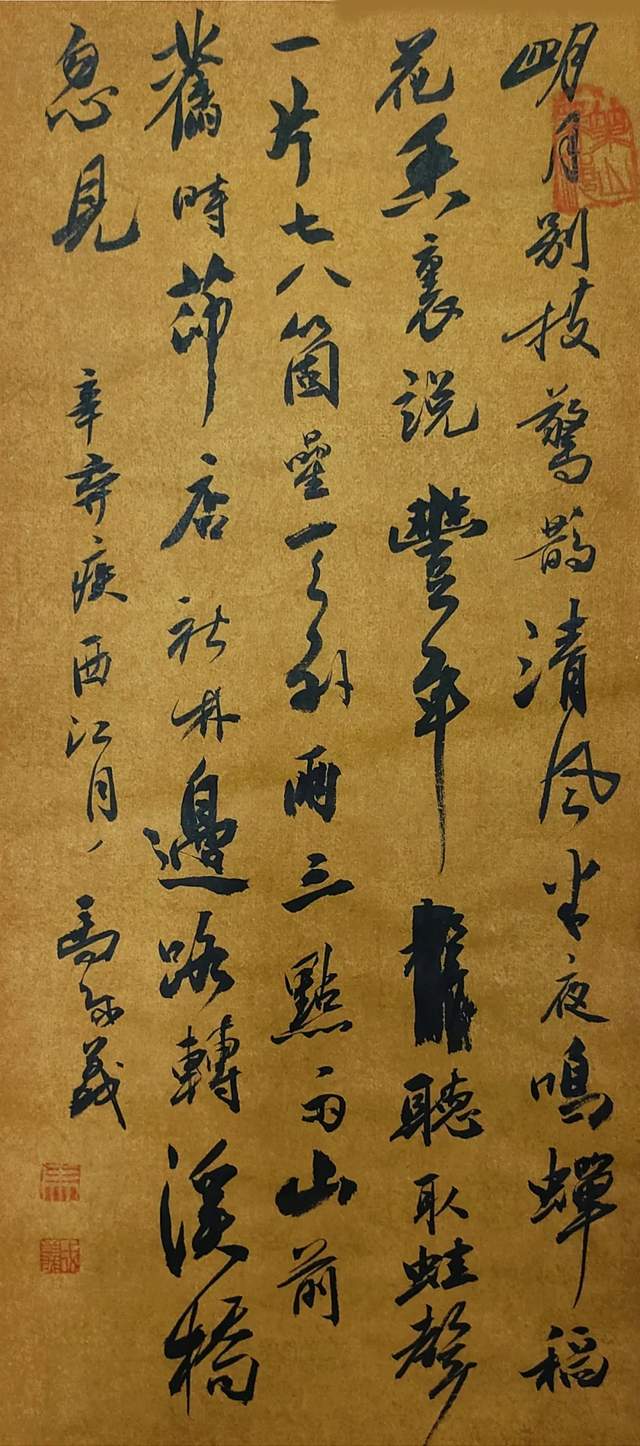 明月別枝驚鵲清風半夜鳴蟬稻
花香裏說豐年聽取蛙聲
一片七八箇星天外兩三點雨山前
舊時茆店社林邊路轉溪橋
忽見
辛棄疾西江月
馬義